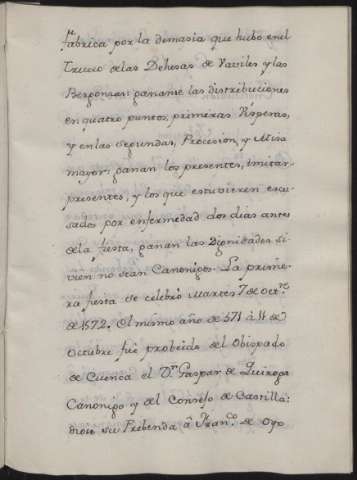 fabrica por la demasia que hubo en el
Trueco de las Dehesas de Vaviles y las
Bergonsas: gananse las distribuciones
en quatro puntos, primeras Visperas,
y en las segundas, Procesion, y Misa
mayor: ganan los presentes, è inter-
presentes, y los que estuvieren escu-
sados por enfermedad dos dias antes
de la fiesta, ganan las Dignidades si
bien no sean Canonigos. La prime-
ra fiesta se celebrò Martes 7 de oct.re
de 1572. El mismo año de 571 à 11 de
Octubre fuè probeido del Obispado
de Cuenca el D.r Gaspar de Quiroga
Canonigo y del Consejo de Castilla:
diose su Prebenda â Fran.co de Oyo